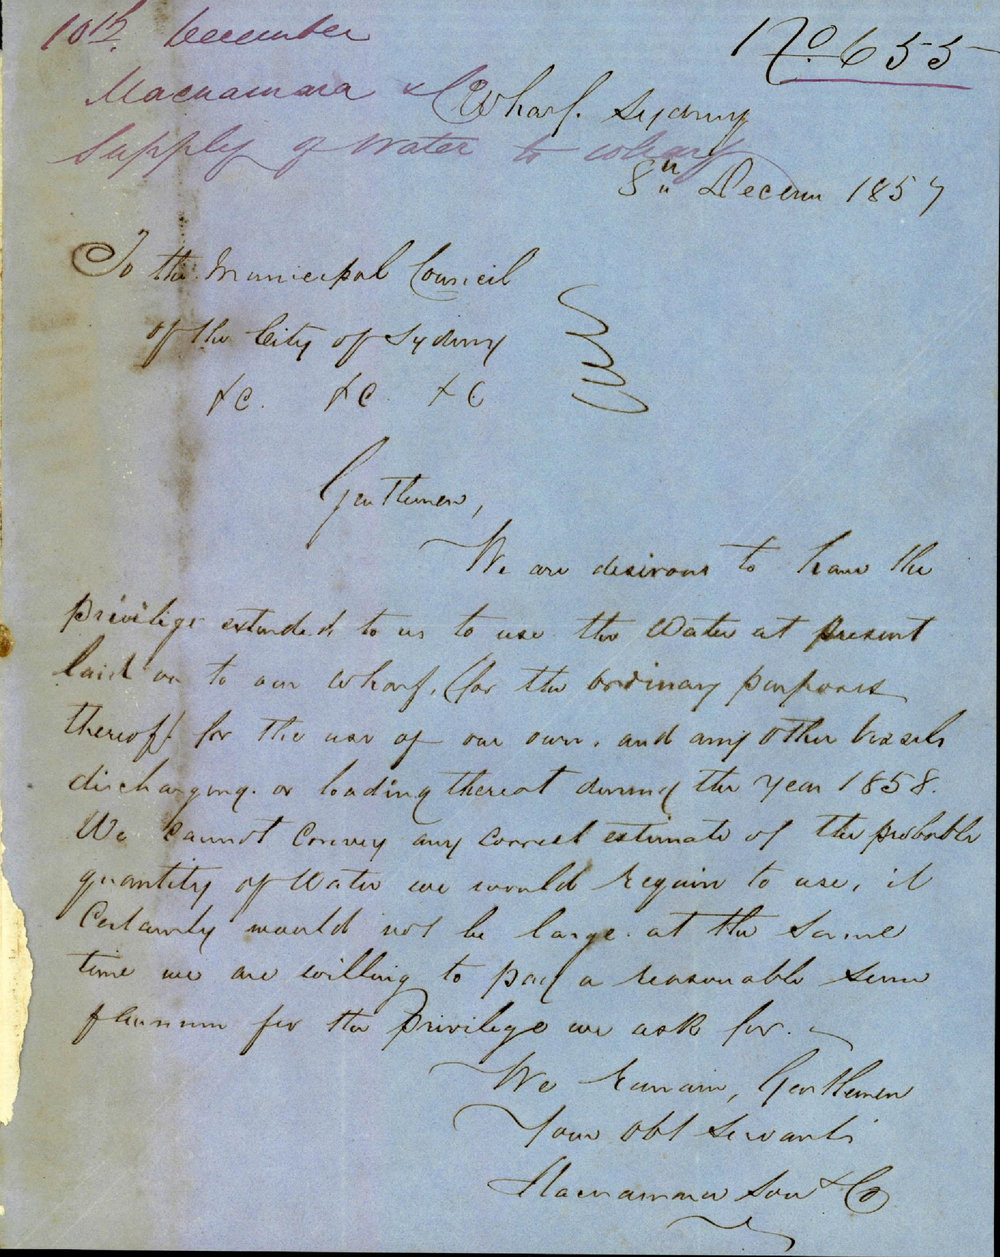 10th December
No 655
Macnamara & Co
Wharf. Sydney
Supply of Water to Wharf
8th Decem 1857
To the Municipal Council
of the City of Sydney
&C. &C. &C
Gentlemen,
We are desirous to have the
privilege extended to us to use the Water at present
laid on to our Wharf, (for the ordinary purposes
thereof) for the use of our own, and any other vessels
discharging or loading thereat during the Year 1858.
We cannot convey any correct estimate of the probable
quantity of Water we would require to use, it
Certainly would not be large. at the same
time we are willing to pay a reasonable sum
p annum for the Privilege we ask for.
We remain, Gentlemen
Your Obt Servants
Macnamara Son & Co